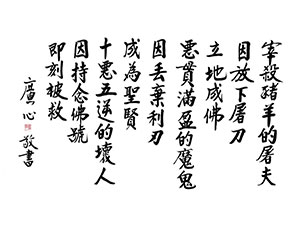 宰殺豬羊的屠夫
因放下屠刀
立地成佛
惡貫滿盈的魔鬼
因丟棄利刃
成為聖賢
十惡五逆的壞人
因持念佛號
即刻被救
廣心敬書